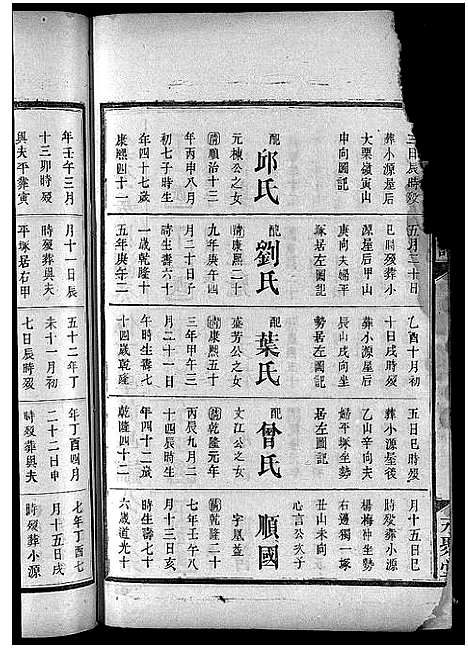 三日辰時殁
葬小源屋后
大栗嶺寅山
申向圖記
配
邱氏
元棟公之女
清順治十三
年丙申八月
初七子時生
年四十七歲
康熙四十一
年壬午三月
十三卯時殁
與夫平葬寅
五月二十日
巳時殁葬小
源屋后甲山
庚向夫婦平
塚居左圖記
配
劉氏
清康熙二十
九年庚午四
月二十日子
時生壽六十
一歲乾隆十
五年庚午二
月十一日辰
時殁葬與夫
平塚居右甲
乙酉十月初
十日戌時殁
葬小源屋后
辰山戌向坐
勢居左圖記
配
葉氏
盛芳公之女
清康熙五十
三年甲午三
月二十一日
午時生壽七
十四歲乾隆
五十二年丁
未十一月初
七日辰時殁
五日巳時殁
葬小源屋後
乙山辛向夫
婦平塚坐勢
居左圖記
配
曾氏
文江公之女
清乾隆元年
丙辰九月二
十四辰時生
年四十二歲
乾隆四十二
年丁酉四月
二十二日申
時殁葬與夫
月十五日巳
時殁葬小源
楊梅冲坐勢
右邊獨一塚
丑山未向
心言公次子
順國
字凰蓋
清乾隆二十
七年壬午八
月十三日亥
時生壽七十
六歲道光十
七年丁酉七
月十五日戌
時殁葬小源